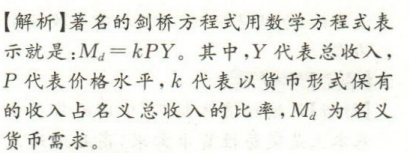 【解析】著名的剑桥方程式用数学方程式表
示就是:M_d=kPY。其中,Y 代表总收入,
P 代表价格水平,k 代表以货币形式保有
的收入占名义总收入的比率,M_d 为名义
货币需求。